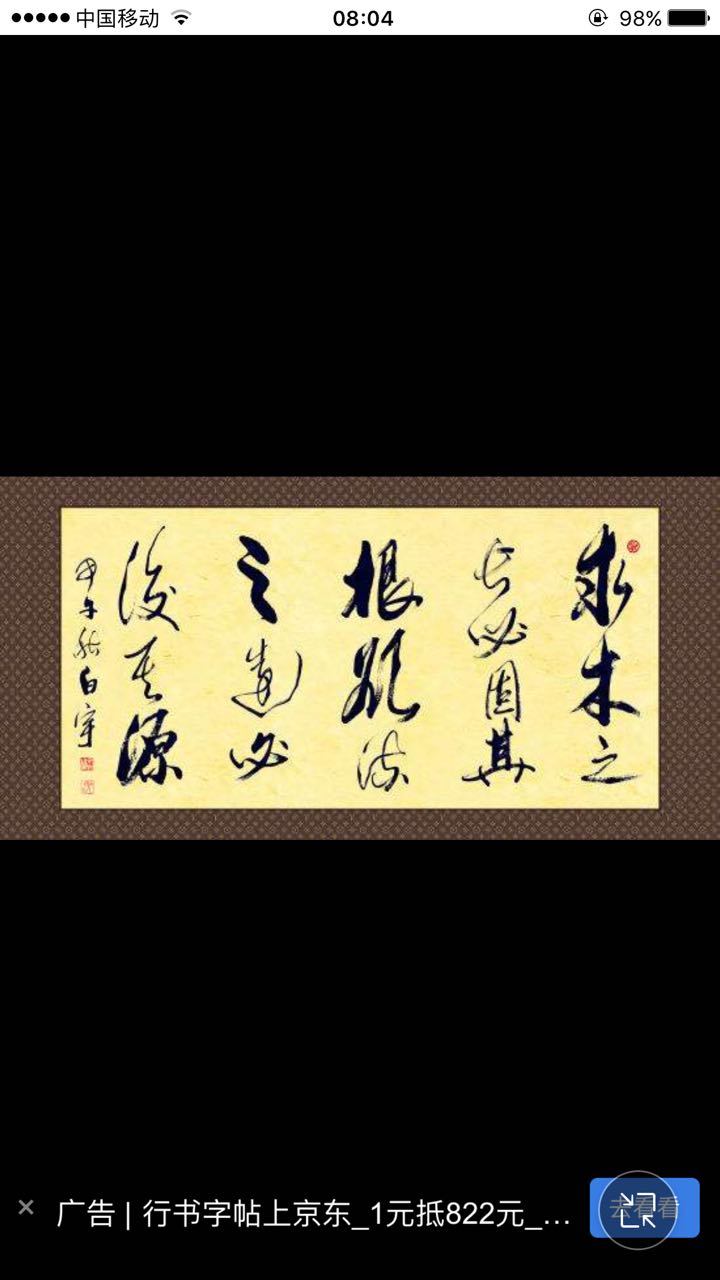 中国移动 08:04 98%
求木之
长必固其
根欲流
之远必
浚其源
甲午秋白宇
广告 | 行书字帖上京东_1元抵822元_…
去看看